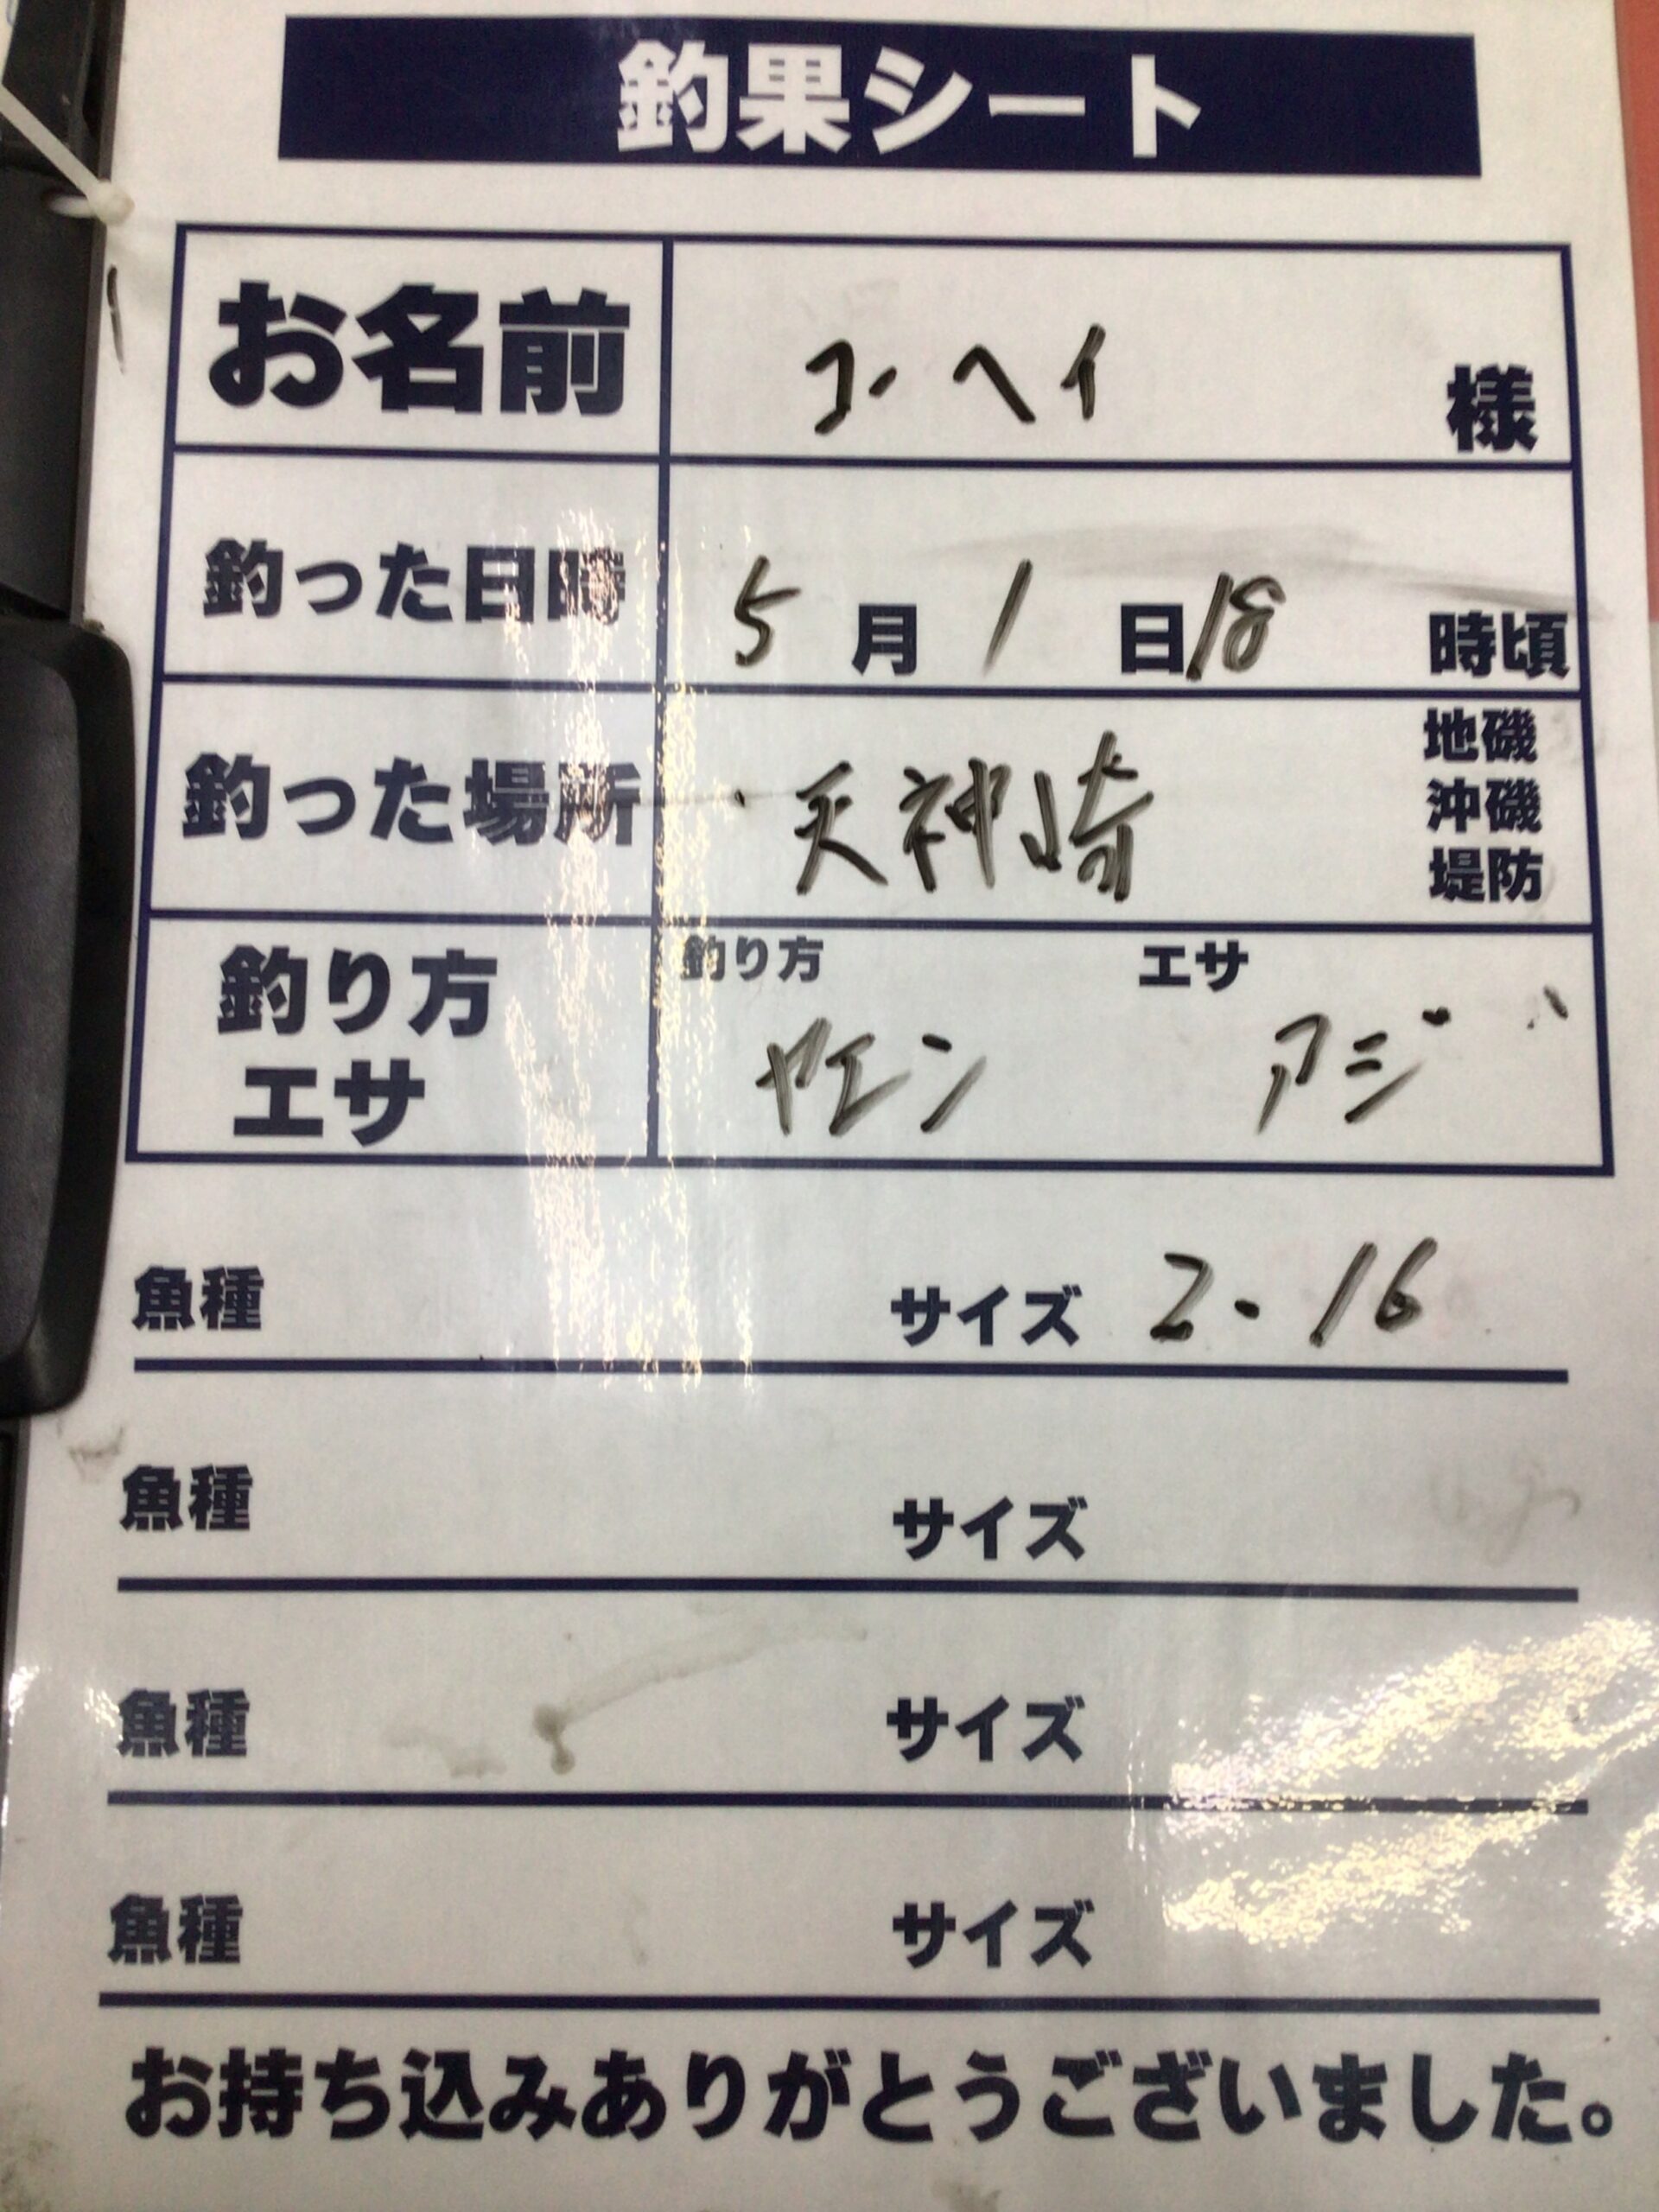 釣果シート
お名前 コーヘイ 様
釣った日時 5月1日18時頃
釣った場所 天神崎 地磯
沖磯
堤防
釣り方 エサ
釣り方
エサ
ヤエン アジ
魚種 サイズ 2.16
魚種 サイズ
魚種 サイズ
魚種 サイズ
お持ち込みありがとうございました。